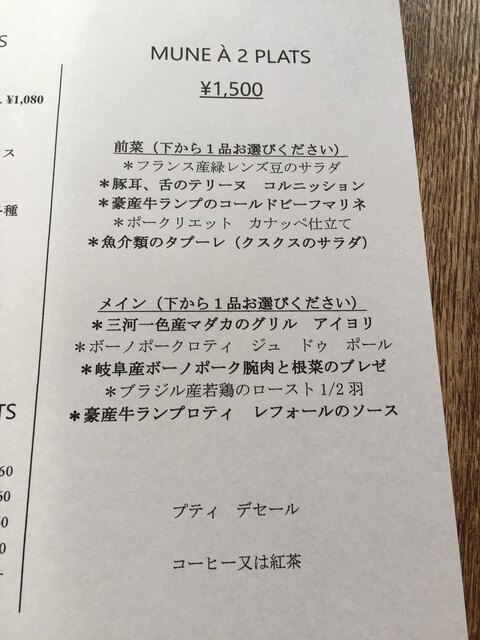 S
. ¥1,080
ス
各種
TS
60
60
0
0
-
MUNE À 2 PLATS
¥1,500
前菜（下から１品お選びください）
＊フランス産緑レンズ豆のサラダ
＊豚耳、舌のテリーヌ　コルニッション
＊豪産牛ランプのコールドビーフマリネ
＊ポークリエット　カナッペ仕立て
＊魚介類のタブーレ（クスクスのサラダ）
メイン（下から１品お選びください）
＊三河一色産マダカのグリル　アイヨリ
＊ボーノポークロティ　ジュ　ドゥ　ポール
＊岐阜産ボーノポーク腕肉と根菜のブレゼ
＊ブラジル産若鶏のロースト1/2羽
＊豪産牛ランプロティ　レフォールのソース
プティ　デセール
コーヒー又は紅茶